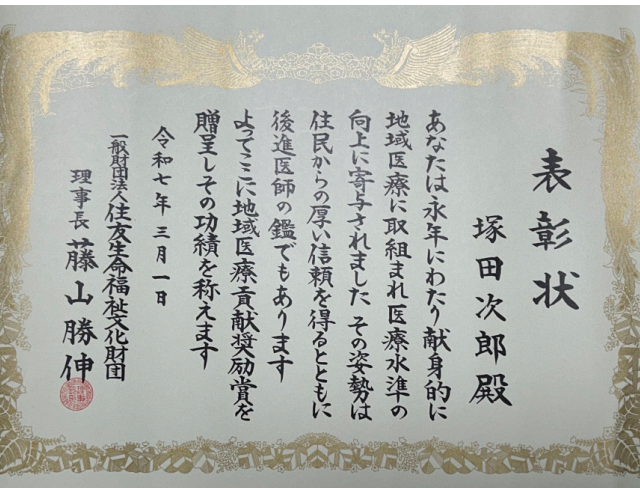 表彰状
塚田次郎殿
あなたは永年にわたり献身的に
地域医療に取組まれ医療水準の
向上に寄与されました その姿勢は
住民からの厚い信頼を得るとともに
後進医師の鑑でもあります
よってここに地域医療貢献奨励賞を
贈呈しその功績を称えます
令和七年三月一日
一般財団法人住友生命福祉文化財団
理事長 藤山勝伸